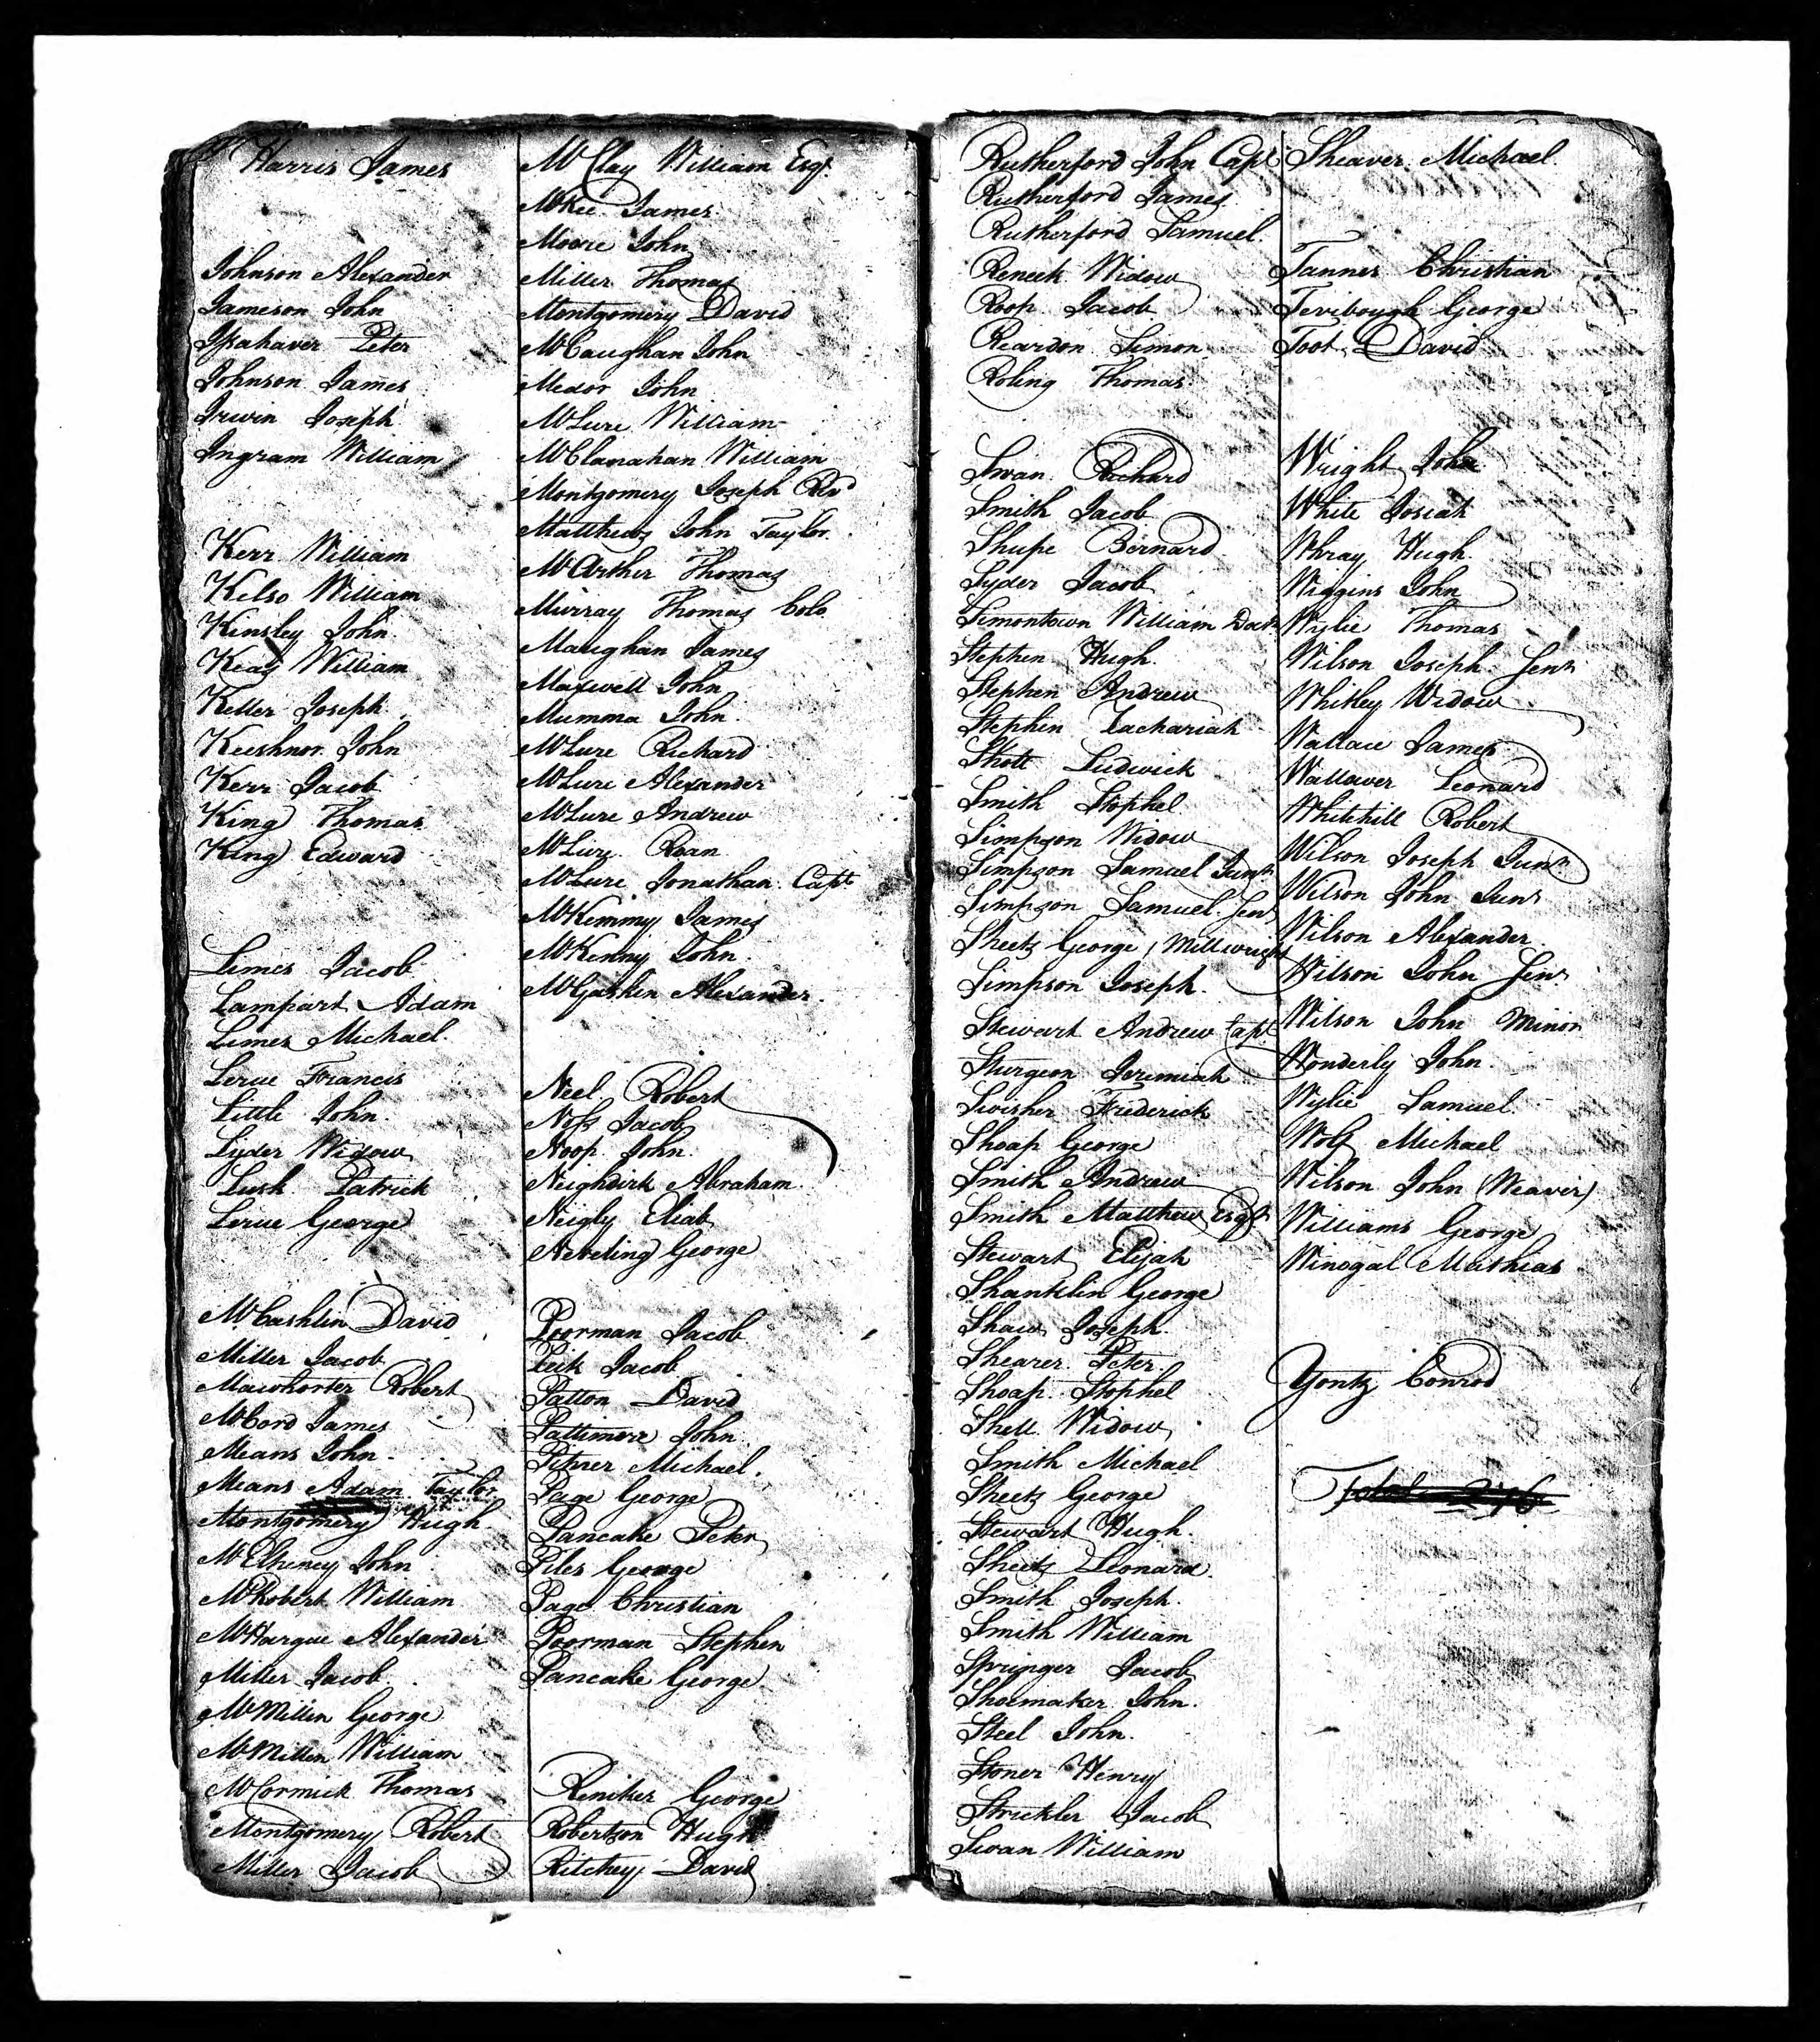 Harris James
Johnson Alexander
Jameson John
Peter
Johnson James
Irwin Joseph
Ingram William
Kerr William
Kelso William
Kinsley John
Keag William
Keller Joseph
Keeshnor John
Kerr Jacob
King Thomas
King Edward
Limes Jacob
Lampart Adam
Limes Michael
Lerue Francis
Little John
Lyder Widow
Lusk Patrick
Lerue George
McCashlin David
Miller Jacob
Mawhorter Robert
McCord James
Means John
Means Adam Taylor
Montgomery Hugh
McElheney John
McRobert William
McHargue Alexander
Miller Jacob
McMillin George
McMillen William
McCormick Thomas
Montgomery Robert
Miller Jacob
McClay William Esqr.
McKee James
Moore John
Miller Thomas
Montgomery David
McCaughan John
Medor John
McLure William
McClanahan William
Montgomery Joseph Revd
Matthews John Taylor
McArther Thomas
Murray Thomas Colo
Maughan James
Maxwell John
Mumma John
McLure Richard
McLure Alexander
McLure Andrew
McLure Roan
McLure Jonathan Capt
McKimmy James
McKenny John
McGaskin Alexander
Neel Robert
Ness Jacob
Noop John
Neighdirk Abraham
Neigly Eliab
Neveling George
Poorman Jacob
Peck Jacob
Patton David
Pattimore John
Pitner Michael
Page George
Pancake Peter
Piles George
Page Christian
Poorman Stephen
Pancake George
Reniker George
Robertson Hugh
Ritchey David
Rutherford John Capt
Rutherford James
Rutherford Samuel
Reneck Widow
Roop Jacob
Reardon Simon
Roling Thomas
Swan Richard
Smith Jacob
Shupe Bernard
Syder Jacob
Simontown William Doctr
Stephen Hugh
Stephen Andrew
Stephen Zachariah
Shott Ludwick
Smith Stophel
Simpson Widow
Simpson Samuel Junr
Simpson Samuel Senr
Sheetz George, Millwright
Simpson Joseph
Stewart Andrew Capt
Sturgeon Jeremiah
Swisher Frederick
Shoap George
Smith Andrew
Smith Matthew Esqr
Stewart Elijah
Shanklin George
Shaw Joseph
Shearer Peter
Shoap Stophel
Shell Widow
Smith Michael
Sheetz George
Stewart Hugh
Sheetz Leonard
Smith Joseph
Smith William
Springer Jacob
Shoemaker John
Steel John
Stoner Henry
Strickler Jacob
Swan William
Sheaver Michael
Tanner Christian
Tevibough George
Toot David
Wright John
White Josiah
Whray Hugh
Wiggins John
Wylie Thomas
Wilson Joseph Senr
Whitley Widow
Wallace James
Wallower Leonard
Whitehill Robert
Wilson Joseph Junr
Wilson John Junr
Wilson Alexander
Wilson John Senr
Wilson John Minor
Wonderly John
Wylie Samuel
Wolf Michael
Wilson John (Weaver)
Williams George
Winogal Mathias
Yontz Conrod
Total